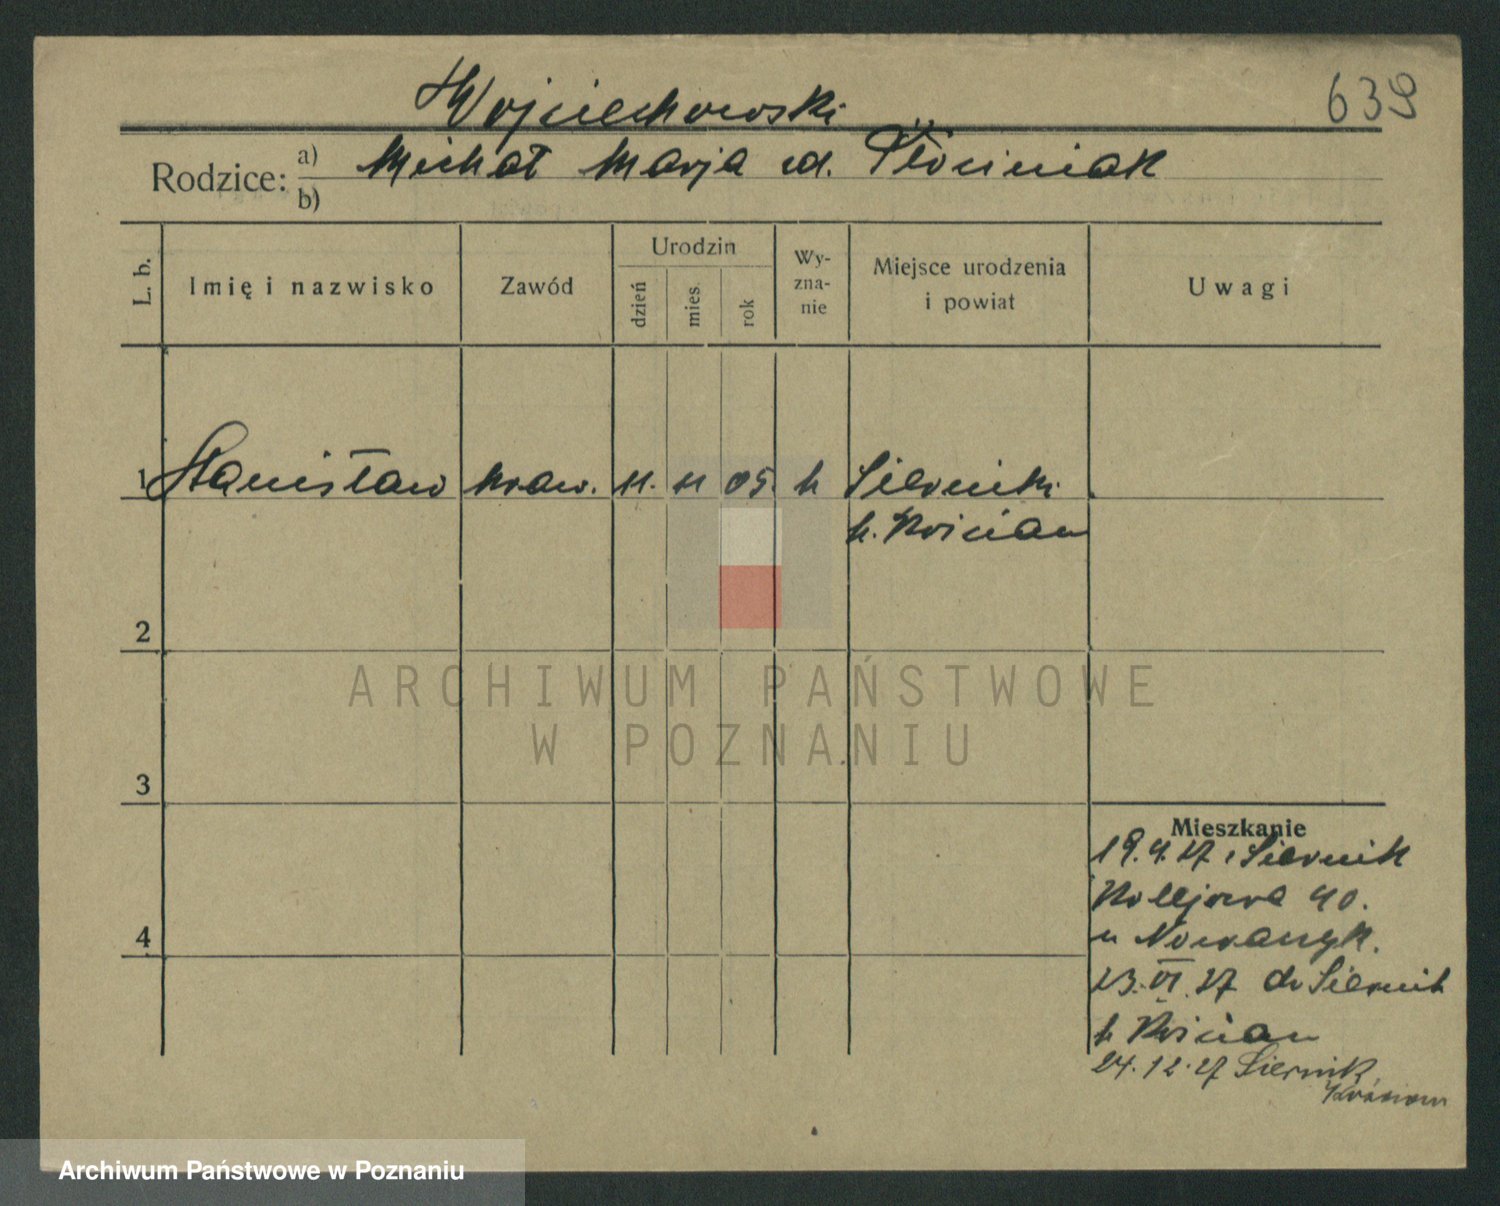 639
Wojciechowski
Rodzice: a) Michał Marja zd. Płóciniak
b)
L. b.
Imię i nazwisko
Zawód
Urodzin
dzień
mies.
rok
Wy-
zna-
nie
Miejsce urodzenia
i powiat
Uwagi
1 Stanisław kraw. 11. 11 05. k Sierniki
k. Kościan
2
3
4
Mieszkanie
19.4.27 z Siernik
Kolejowa 40.
u Nowaczyk.
23.VI.27 do Siernik
k Kościan
24.12.27 Siernik
Kościan
ARCHIWUM PAŃSTWOWE
W POZNANIU
Archiwum Państwowe w Poznaniu